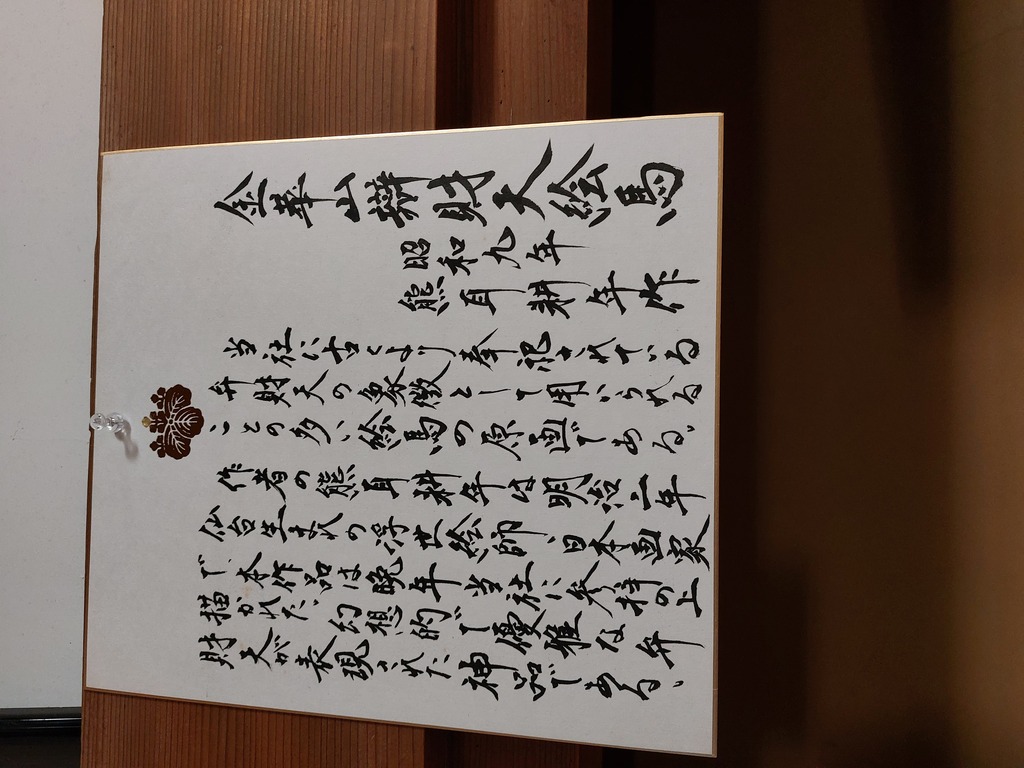 金華山辨財天絵馬
昭和九年
熊耳耕年作
当社に古くより奉祀されている
弁財天の象徴として用いられる
ことの多い絵馬の原画である。
作者の熊耳耕年は明治二年
仙台生まれの浮世絵師、日本画家
で、本作品は晩年当社に参拝の上
描かれた、幻想的で優雅な弁
財天が表現された神品である、